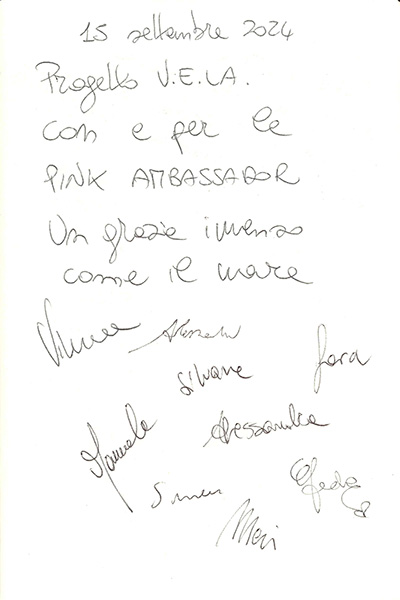 15 settembre 2024
Progetto V.E.LA.
con e per le
PINK AMBASSADOR
Un grazie immenso
come il mare
Silvana
Sara
Manuela
Alessandra
Meri